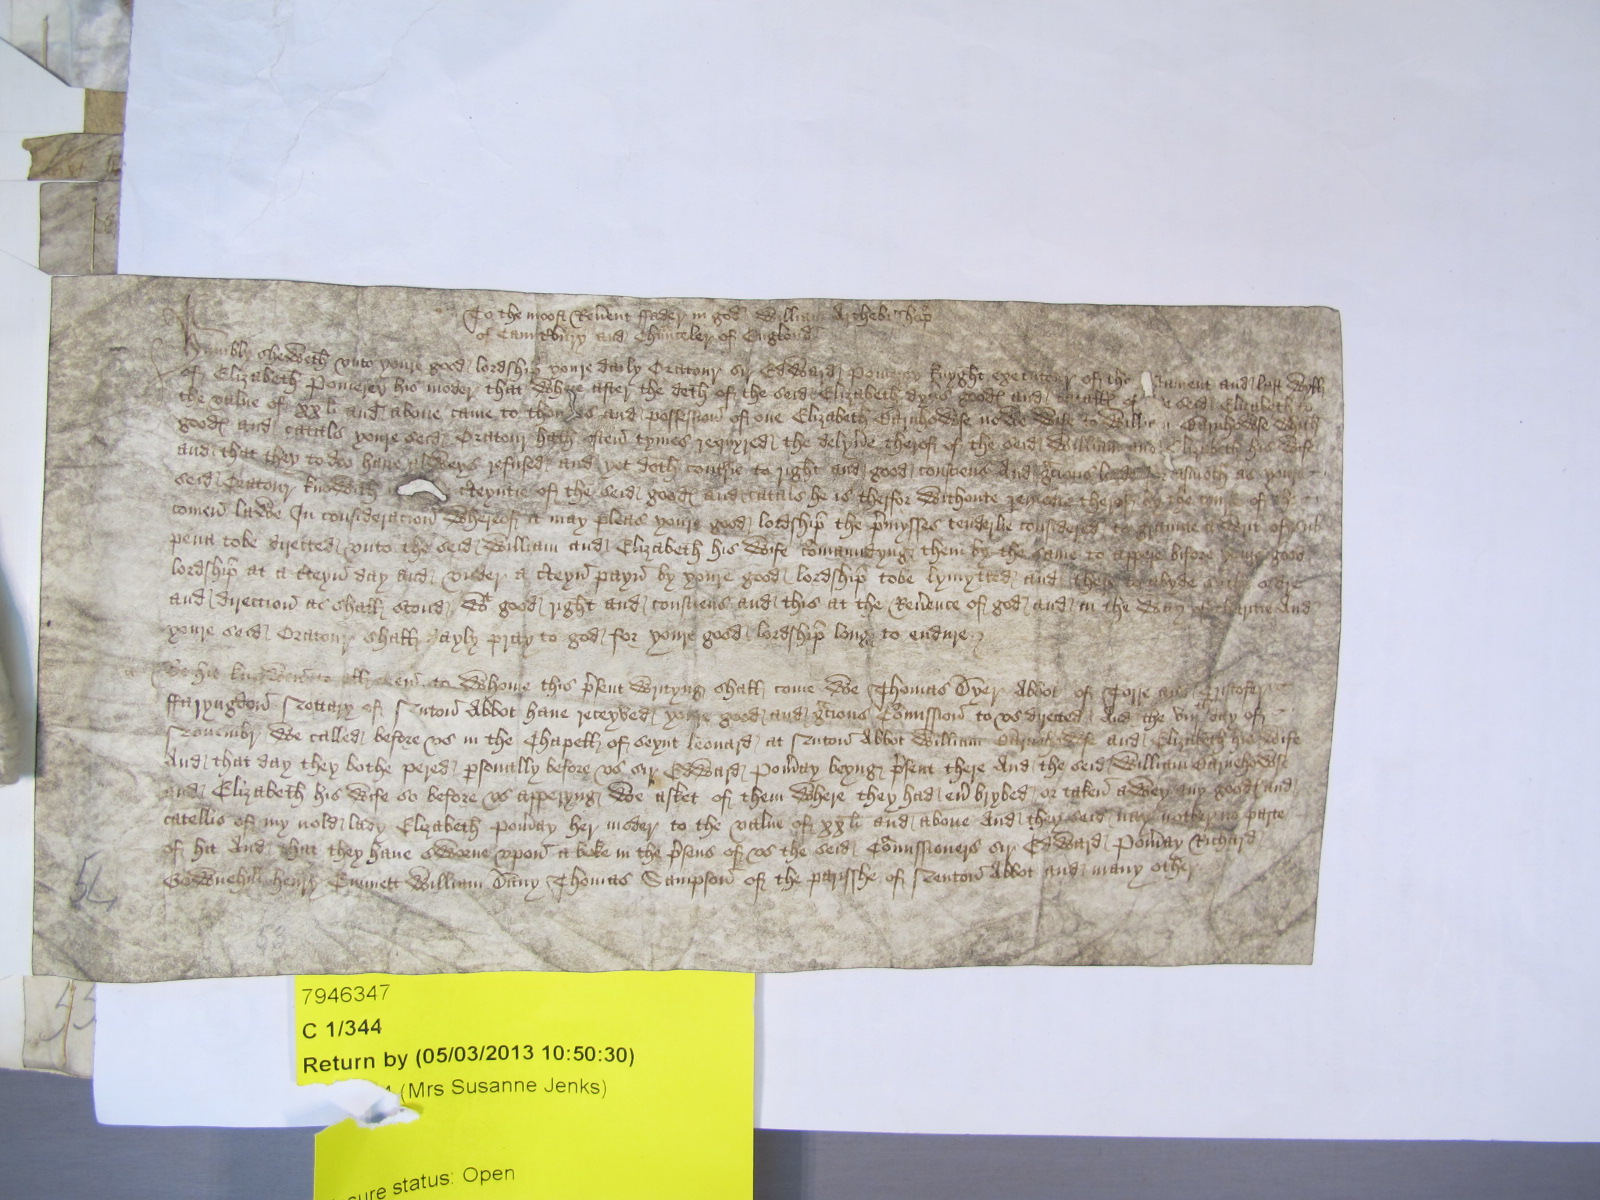 To the moost Reuent ffader in god William Archebisshop
of Caunterbury and Chaunceler of Englond
Humbly sheweth unto youre good lordship youre daily Oratour sir Edward Pomerey knyght executour of the ament and last Will
of Elizabeth Pomerey his moder that where after the deth of the seid Elizabeth dyvs goodes and catalles of e seid Elizabeth to
the value of xx li and above came to the and possession of one Elizabeth Barnhowse nowe Wife to Willia Barnhowse which
goodes and catals youre seid Oratour hath often tymes requyred the delyvere therof of the seid William and Elizabeth his Wife
and that they to doo have alweys refused and yet doth contrarie to right and good consciens And gracious lorde asmoch as youre
seid Oratour knowith certeyntie of the seid goodes and catals he is therfor withoute remedie therof by the cours of the
comen lawe In consideracion wherof it may please youre good lordship the premysses tenderlie considered to graunte a writ of sub
pena tobe directed unto the seid William and Elizabeth his Wife comaundyng them by the same to appere before youre good
lordship at a certeyn day and under a certeyn payn by youre good lordship tobe lymytted and there to abyde suche ordre
and direccion as shall stond wt good right and consciens and this at the Reuence of god and in the way of charitie And
youre seid Oratour shall dayly pray to god for youre good lordship long to endure
Be hit knowen all men to Whome this present writyng shall come We Thomas Dyer Abbot of Torre and Cristofer
ffaryngdon Notary of Nuton Abbot have receyved youre good and gracious Comission to us directed And the viii day of
Novembr We called before us in the Chapell of seynt leonard at Nuton Abbot William Barnehowse and Elizabeth his Wife
And that day they bothe pered personally before us sir Edward Pomeray beyng present there And the seid William Barnehowse
and Elizabeth his Wife so before us apperyng We asket of them where they had brybed or taken awey any goodes and
catellis of my nold lady Elizabeth Pomeray her moder to the value of xx li and above And they seid nay nother no parte
of hit And that they have sworne upon a boke in the presens of us the seid Comissioners sir Edward Pomeray Richard
henry William Thomas Sampson of the parisshe of Nuton Abbot and many other
54
53
55
7946347
C 1/344
Return by (05/03/2013 10:50:30)
(Mrs Susanne Jenks)
sure status: Open